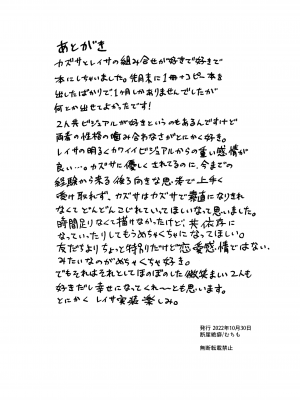 あとがき
カズサとレイサの組み合せが好きで好きで
本にしちゃいました。先月末に1冊+コピー本を
出したばかりで1ヶ月しかありませんでしたが
何とか出せてよかったです!
2人共ビジュアルが好きというのもあるんですけど
両者の性格の噛み合わなさがとにかく好き。
レイサの明るくカワイイビジュアルからの重い感情が
良い…。カズサに優しくされてるのに、今までの
経験から来る後ろ向きな思考で上手く
受け取れず、カズサはカズサで素直になりきれ
なくてどんどんこじれていてほしいなって思いました。
時間足りなくて描けなかったけど、共依存に
なっていたりしてもうめちゃくちゃになってほしい。
友だちよりちょっと特別だけど恋愛感情ではない、
みたいなのがめちゃくちゃ好き。
でもそれはそれとしてほのぼのした微笑ましい2人も
好きだし幸せになってくれ〜とも思います。
とにかく レイサ実装楽しみ。
発行 2022年10月30日
断崖絶壁/むちも
無断転載禁止